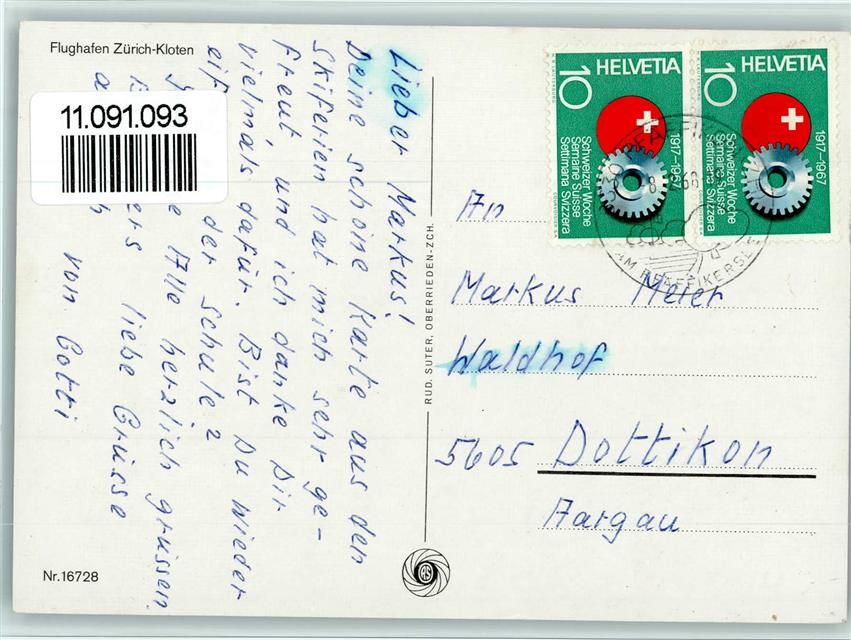 Flughafen Zürich-Kloten
11.091.093
Lieber Markus!
Deine schöne Karte aus den
Skiferien hat mich sehr ge-
freut, und ich danke Dir
vielmals dafür. Bist Du wieder
der Schule?
Alle herzlich grüssen.
liebe Grüsse
von Gotti
Nr.16728
RUD. SUTER, OBERRIEDEN-ZCH.
HELVETIA
10
1917-1967
Schweizer Woche
Semaine Suisse
Settimana Svizzera
HELVETIA
10
1917-1967
Schweizer Woche
Semaine Suisse
Settimana Svizzera
AM PFÄFFIKERSEE
An
Markus Meier
Waldhof
5605 Dottikon
Aargau